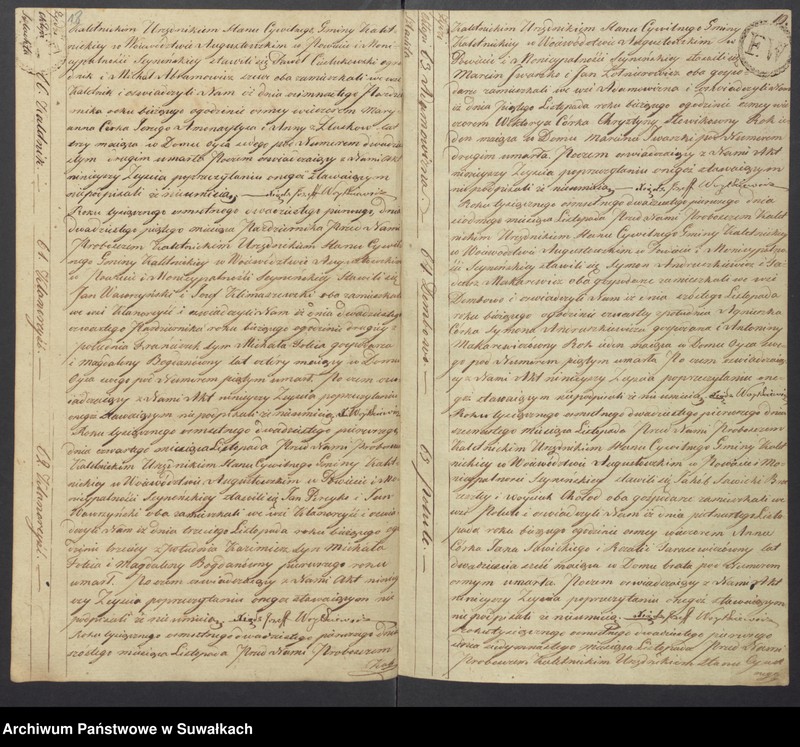 Kaletnickim Urzędnikiem Stanu Cywilnego Gminy Kalet-
nickiey w Województwie Augustowskim w Powiecie i Muni-
cypalności Seyneńskiey stawili się Paweł
i Michał Adamowicz oba zamieszkali we wsi
Kaletnik i oświadczyli Nam iż dnia Paździer-
nika roku bieżącego o godzinie osmey wieczorem Mary-
anna Córka i Anny z lat
trzy maiąca w Domu Oyca swego pod Numerem dwudzie-
stym drugim umarła Poczem oświadczaiący z Nami Akt
ninieyszy Zeyscia poprzeczytaniu onegoż stawaiącym
niepodpisali iż nieumieią. Xiądz Józeff Woytkiewicz
Roku tysiącznego ośmsetnego dwudziestego pierwszego, dnia
dwudziestego piątego miesiąca Października Przed Nami
Proboszczem Kaletnickim Urzędnikiem Stanu Cywil-
nego Gminy Kaletnickiey w Województwie Augustowskim
w Powiecie i Municypalności Seyneńskiey Stawili się
Jan Wawrzyński i Józef Klimaszewski oba zamieszkali
we wsi Klonoryść i oświadczyli Nam iż dnia dwudziestego
czwartego Października roku bieżącego o godzinie drugiey z
południa Franciszek Syn Michała Foltia gospodarza
i Magdaleny Bogdanowny lat cztery maiący w Domu
Oyca swego pod Numerem piątym umarł. Poczem oś-
wiadczaiący z Nami Akt ninieyszy Zeyscia poprzeczytaniu
onegoż stawaiącym niepodpisali iż nieumieią. X. Woytkiewicz
Roku tysiącznego ośmsetnego dwudziestego pierwszego,
dnia czwartego miesiąca Listopada Przed Nami Proboszczem
Kaletnickim Urzędnikiem Stanu Cywilnego Gminy Kalet-
nickiey w Województwie Augustowskim w Powiecie i Mu-
nicypalności Seyneńskiey stawili się Jan i Jan
Wawrzyński oba zamieszkali we wsi Klonoryść i oświad-
czyli Nam iż dnia trzeciego Listopada roku bieżącego o go-
dzinie trzeciey z południa Kazimierz Syn Michała
Foltia i Magdaleny Bogdanowny pierwszego roku
umarł. Poczem oświadczaiący z Nami Akt niniey-
szy Zeyscia poprzeczytaniu onegoż stawaiącym nie-
podpisali iż nieumieią. Xiądz Józeff Woytkiewicz
Roku tysiącznego ośmsetnego dwudziestego pierwszego Dnia
szostego miesiąca Listopada Przed Nami Proboszczem
60. Kaletnik.
61. Klonoryść.
62. Klonoryść.
63 Adamowizna.
64 Dembowo
65 Pobule.
Kaletnickim Urzędnikiem Stanu Cywilnego Gminy
Kaletnickiey w Województwie Augustowskim w
Powiecie i Municypalności Seyneńskiey stawili się
Marcin Iwanko i Jan oba gospo-
darze zamieszkali we wsi Adamowizna i oświadczyli Nam
iż dnia piątego Listopada roku bieżącego o godzinie osmey wie-
czorem Wiktorya Córka Chrystyny Rok ie-
den maiąca w Domu Marcina Iwanki pod Numerem
drugim umarła. Poczem oświadczaiący z Nami Akt
ninieyszy Zeyscia poprzeczytaniu onegoż stawaiącym
niepodpisali iż nieumieią. Xiądz Józeff Woytkiewicz
Roku tysiącznego ośmsetnego dwudziestego pierwszego dnia
siodmego miesiąca Listopada Przed Nami Proboszczem Kalet-
nickim Urzędnikiem Stanu Cywilnego Gminy Kaletnickiey
w Województwie Augustowskim w Powiecie i Municypalno-
ści Seyneńskiey stawili się Symon Andruszkiewicz i
Makarewicz oba gospodarze zamieszkali we wsi
Dembowo i oświadczyli Nam iż dnia szostego Listopada
roku bieżącego o godzinie czwartey z południa Agnieszka
Córka Symona Andruszkiewicza gospodarza i Antoniny
Makarewiczowny Rok ieden maiąca w Domu Oyca swe-
go pod Numerem piątym umarła. Poczem oświadczaią-
cy z Nami Akt ninieyszy Zeyscia poprzeczytaniu one-
goż stawaiącym niepodpisali iż nieumieią. Xiądz Woytkiewicz
Roku tysiącznego ośmsetnego dwudziestego pierwszego dnia
miesiąca Listopada Przed Nami Proboszczem
Kaletnickim Urzędnikiem Stanu Cywilnego Gminy Kalet-
nickiey w Województwie Augustowskim w Powiecie i Mu-
nicypalności Seyneńskiey stawili się Jakób Sawicki
i Woyciech Chłod oba gospodarze zamieszkali we
wsi Pobule i oświadczyli Nam iż dnia Listo-
pada roku bieżącego o godzinie osmey wieczorem Anna
Córka Jana Sawickiego i Rozalii lat
dwadzieścia sześć maiąca w Domu brata pod Numerem
osmym umarła Poczem oświadczaiący z Nami Akt
ninieyszy Zeyscia poprzeczytaniu onegoż stawaiącym
niepodpisali iż nieumieią. Xiądz Józeff Woytkiewicz
Roku tysiącznego ośmsetnego dwudziestego pierwszego
dnia miesiąca Listopada Przed Nami
Proboszczem Kaletnickim Urzędnikiem Stanu Cywil-
Archiwum Państwowe w Suwałkach